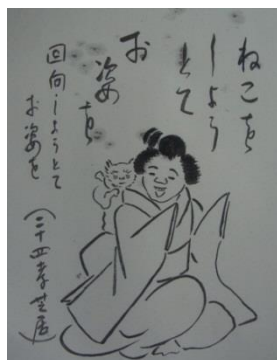 ねこを
しよう
とて
お
姿を
回向しようとて
お姿を
(二十四孝芝居)